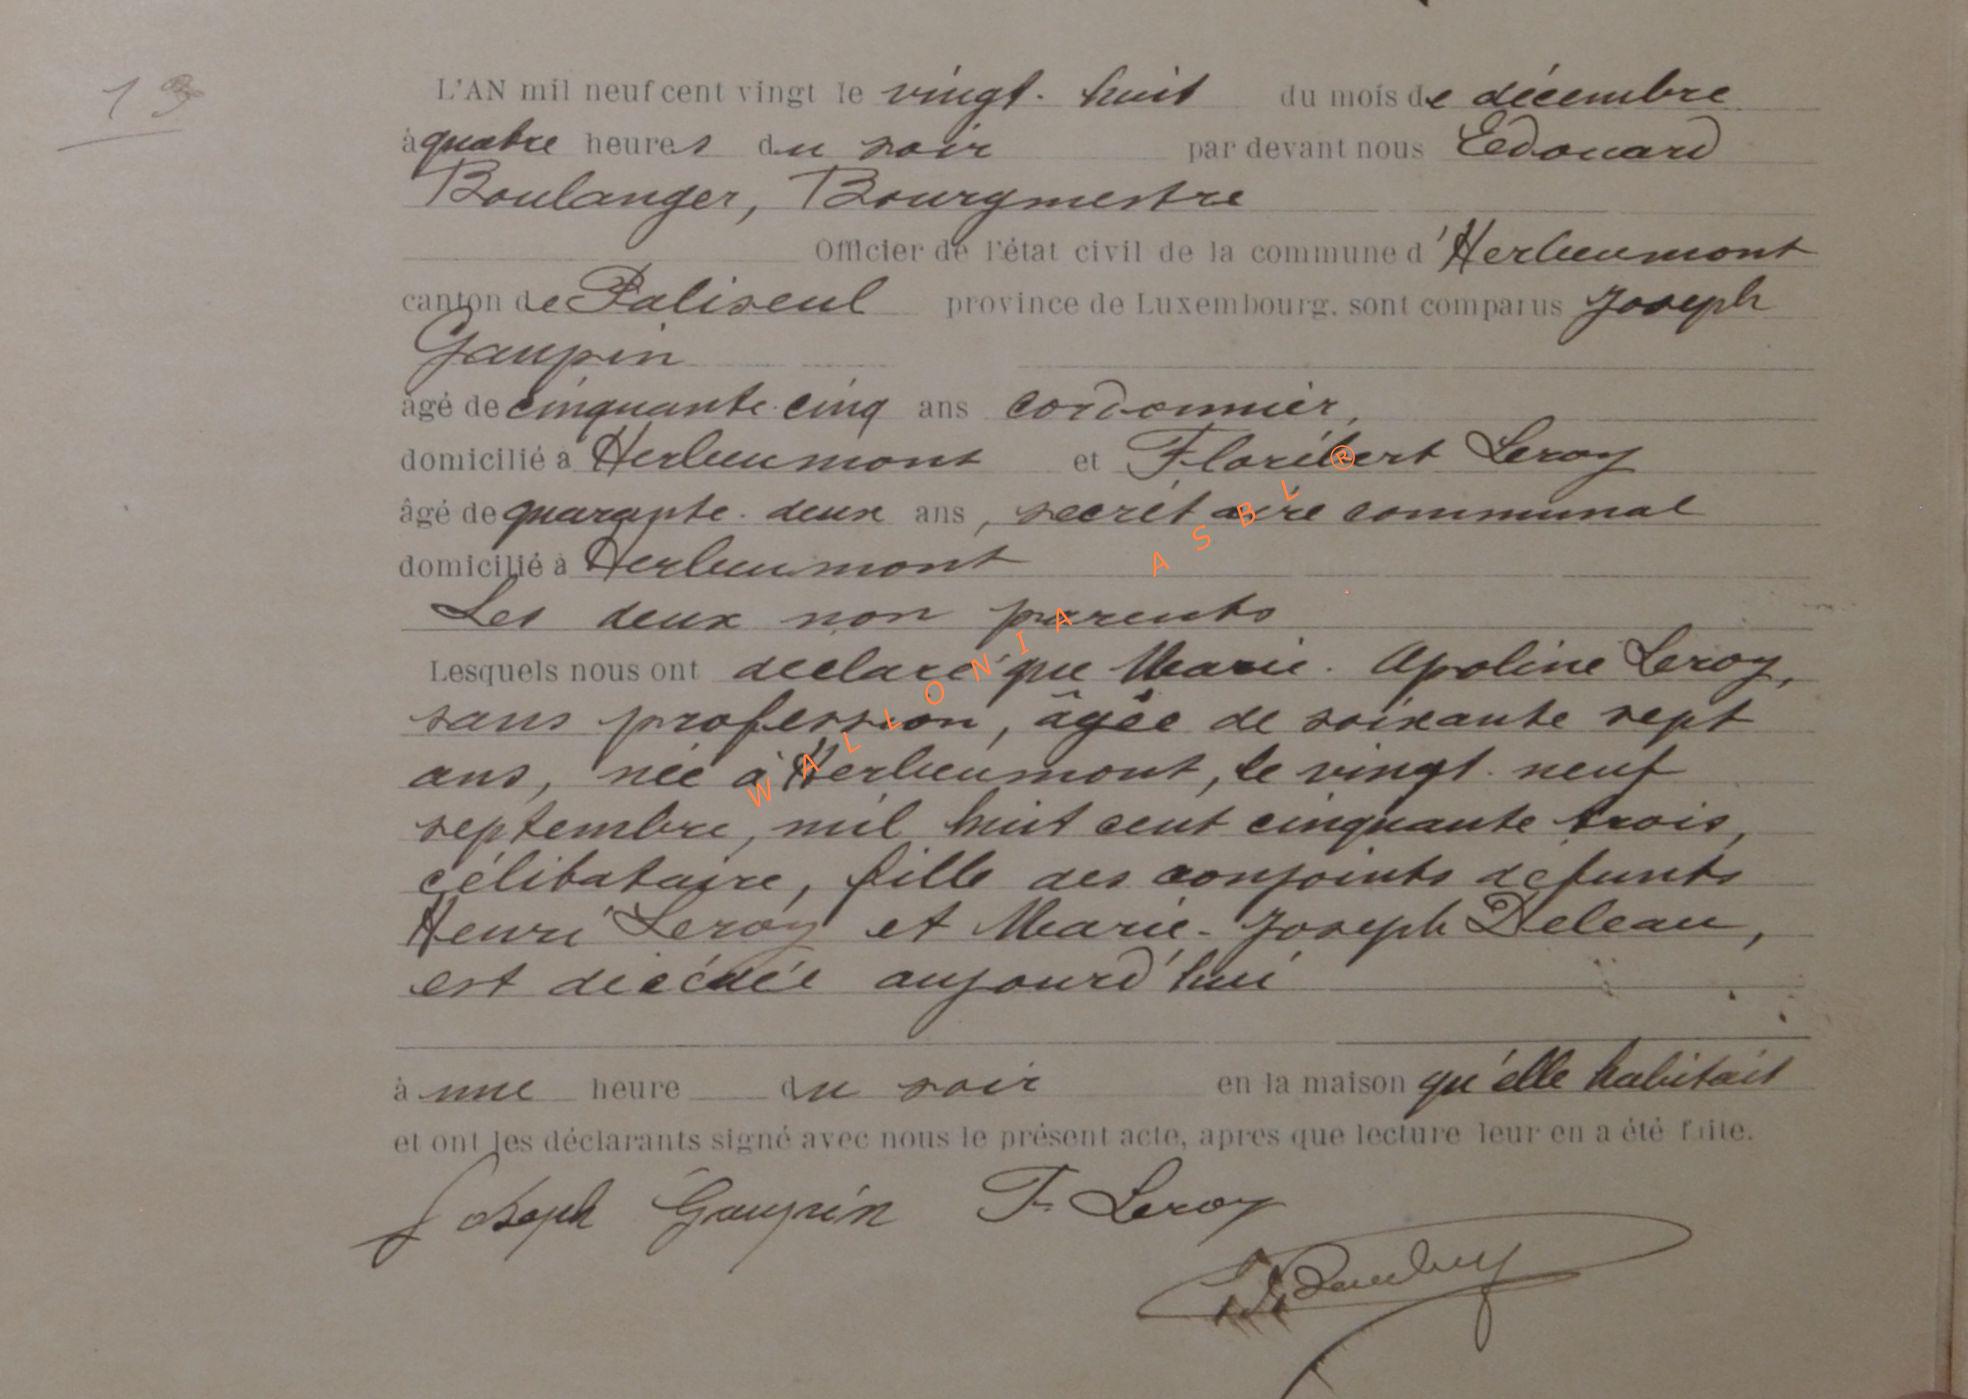 13
L'AN mil neuf cent vingt le vingt-huit du mois de décembre
à quatre heures du soir par devant nous Edouard
Boulanger, Bourgmestre
Officier de l'état civil de la commune d'Herbeumont
canton de Paliseul province de Luxembourg, sont comparus Joseph
Gaupin
âgé de cinquante-cinq ans cordonnier,
domicilié à Herbeumont et Floribert Leroy
âgé de quarante-deux ans, secrétaire communal
domicilié à Herbeumont
Les deux non parents
Lesquels nous ont déclaré que Marie-Apoline Leroy,
sans profession, âgée de soixante sept
ans, née à Herbeumont, le vingt-neuf
septembre, mil huit cent cinquante trois,
célibataire, fille des conjoints défunts
Henri Leroy et Marie-Joseph Deleau,
est décédée aujourd'hui
à une heure du soir en la maison qu'elle habitait
et ont les déclarants signé avec nous le présent acte, après que lecture leur en a été faite.
Joseph Gaupin F. Leroy
WALLONIA ASBL ®